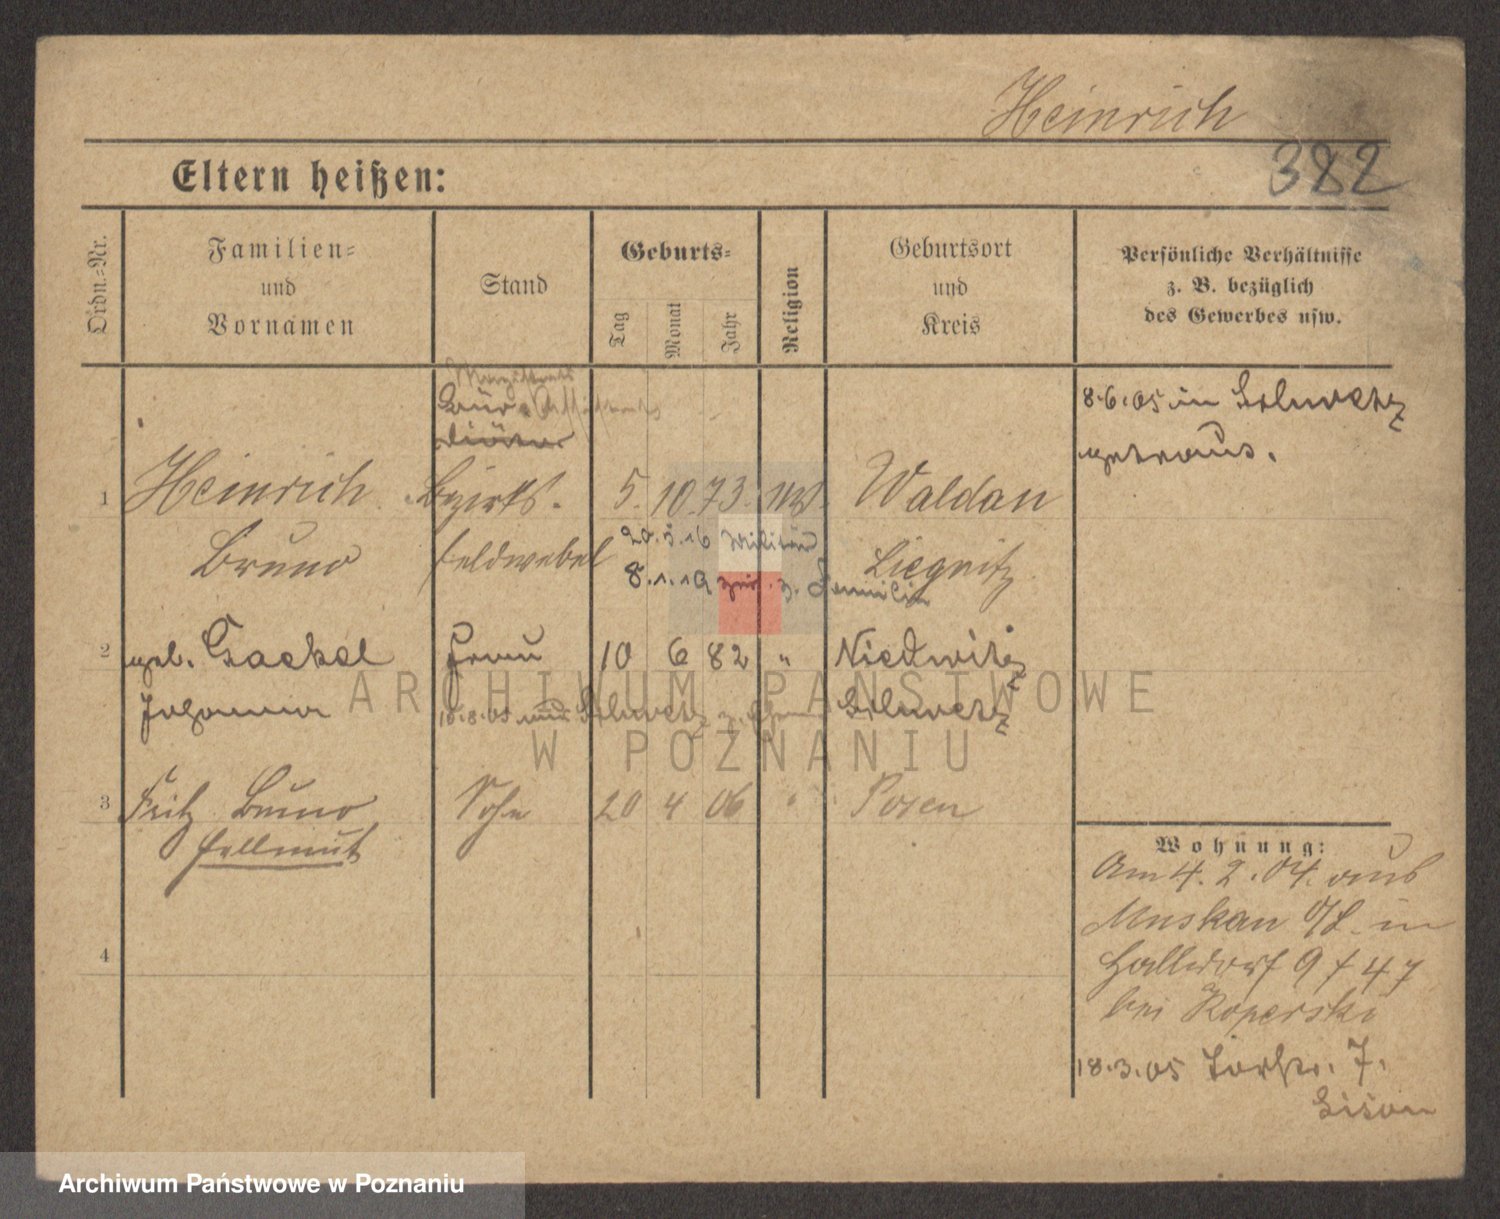 Heinrich
382
Eltern heißen:
Ordn.=Nr.
Familien=
und
Vornamen
Stand
Geburts=
Tag
Monat
Jahr
Religion
Geburtsort
und
Kreis
Persönliche Verhältnisse
z. B. bezüglich
des Gewerbes usw.
8.6.05 in Schwetz
getraut.
Büro
1 Heinrich Bezirks- 5. 10. 73. Waldau
Bruno feldwebel Liegnitz
20.5.16 Militär
8.1.19 zur. z. Familie
2 geb. Frau 10 6 82 "
Johanna Schwetz
18.8.05 aus Schwetz z.
3 Fritz Bruno Sohn 20 4 06 " Posen
Hellmut
4
Wohnung:
Am 4. 2. 04. aus
Muskau O/L. in
Halldorf 9 f 47
bei Koperski
18.3.05 Torstr. 7.
ARCHIWUM PAŃSTWOWE
W POZNANIU
Archiwum Państwowe w Poznaniu